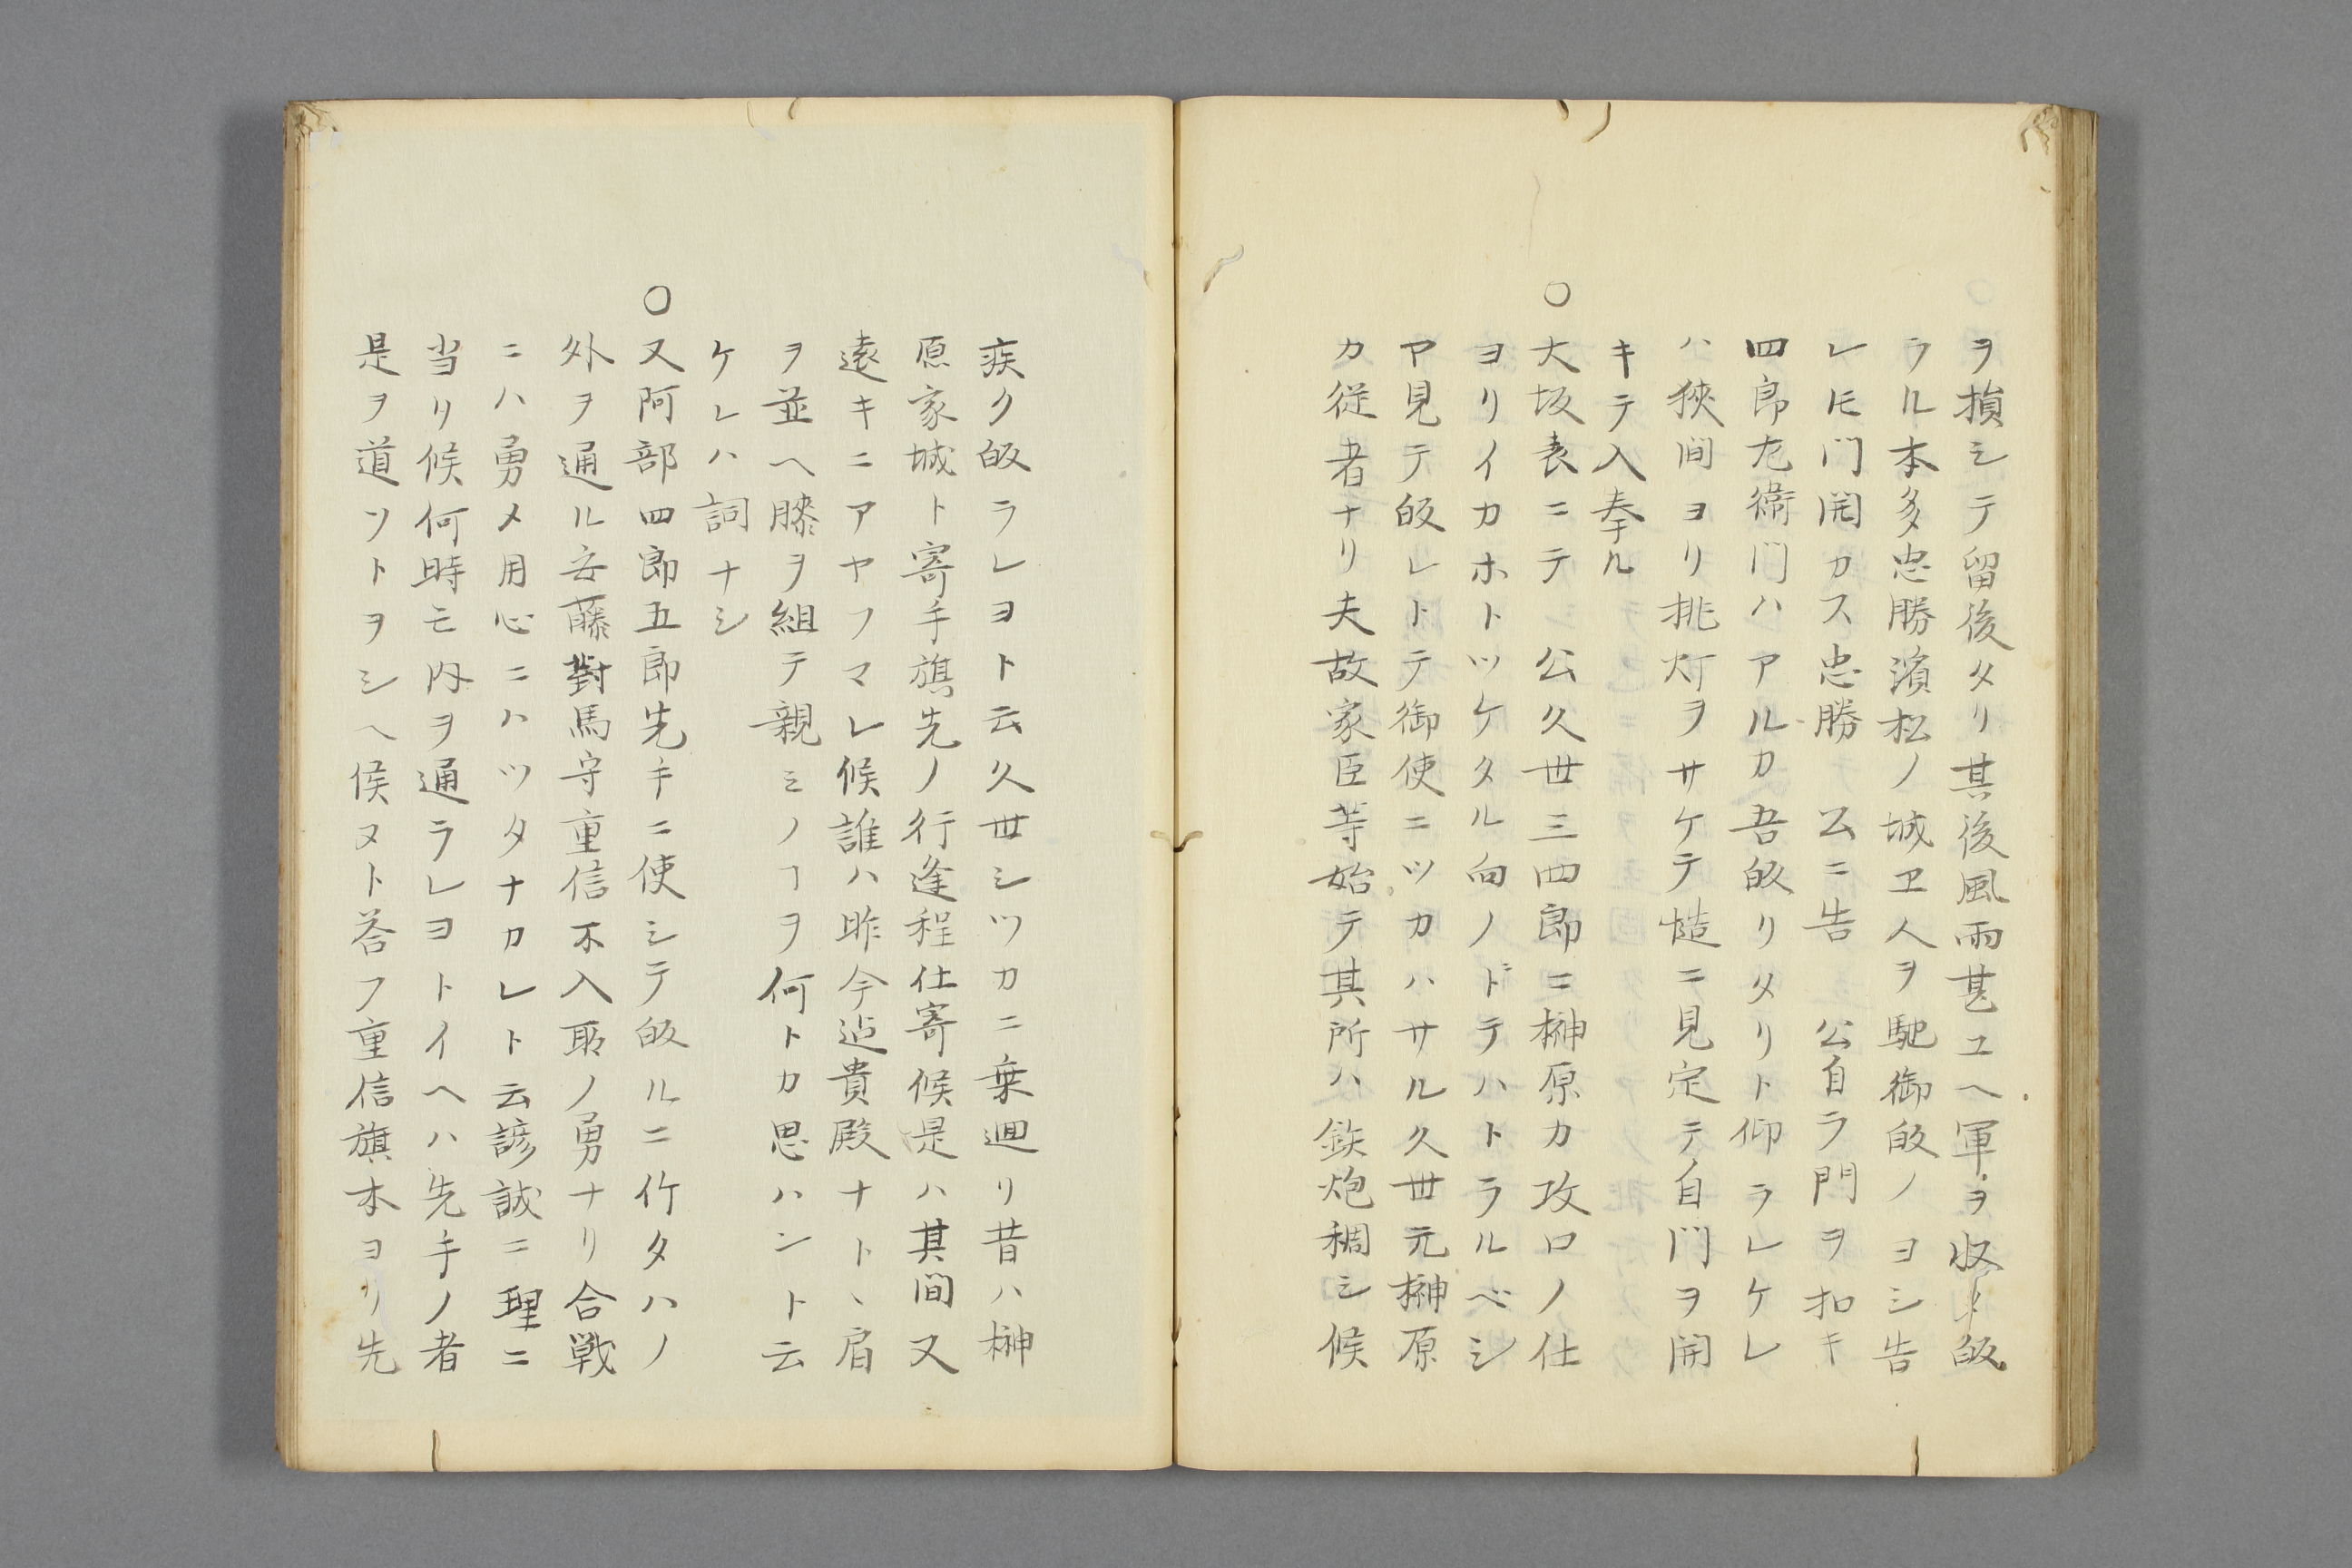 ヲ損シテ留後タリ其後風雨甚ユヘ軍ヲ収メ皈
ラル本多忠勝濱松ノ城ヱ人ヲ馳御皈ノヨシ告
レ𪜈門開カス忠勝 公ニ告 公自ラ門ヲ扣キ
四郎左衛門ハアルカ吾皈リタリト仰ラレケレ
ハ狹間ヨリ挑灯ヲサケテ慥ニ見定テ自門ヲ開
キテ入奉ル
○大坂表ニテ 公久世三四郎ニ榊原カ攻口ノ仕
ヨリイカホトツケタル向ノドテハトラルベシ
ヤ見テ皈レトテ御使ニツカハサル久世元榊原
カ従者ナリ夫故家臣等始テ其所ハ鉄炮稠シ候
疾ク皈ラレヨト云久世シツカニ乗廻リ昔ハ榊
原家城ト寄手旗先ノ行逢程仕寄候是ハ其間又
遠キニアヤフマレ候誰ハ昨今迠貴殿ナトヽ肩
ヲ並ヘ膝ヲ組テ親ミノヿヲ何トカ思ハント云
ケレハ詞ナシ
○又阿部四郎五郎先手ニ使シテ皈ルニ竹タハノ
外ヲ通ル安藤對馬守重信不入耶ノ勇ナリ合戦
ニハ勇メ用心ニハツタナカレト云諺誠ニ理ニ
当リ候何時モ内ヲ通ラレヨトイヘハ先手ノ者
是ヲ道ソトヲシヘ候ヌト荅フ重信旗本ヨリ先